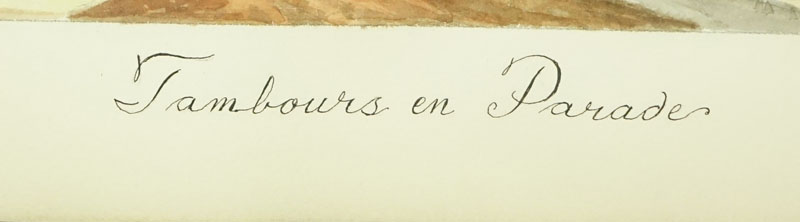 Tambours en Parade